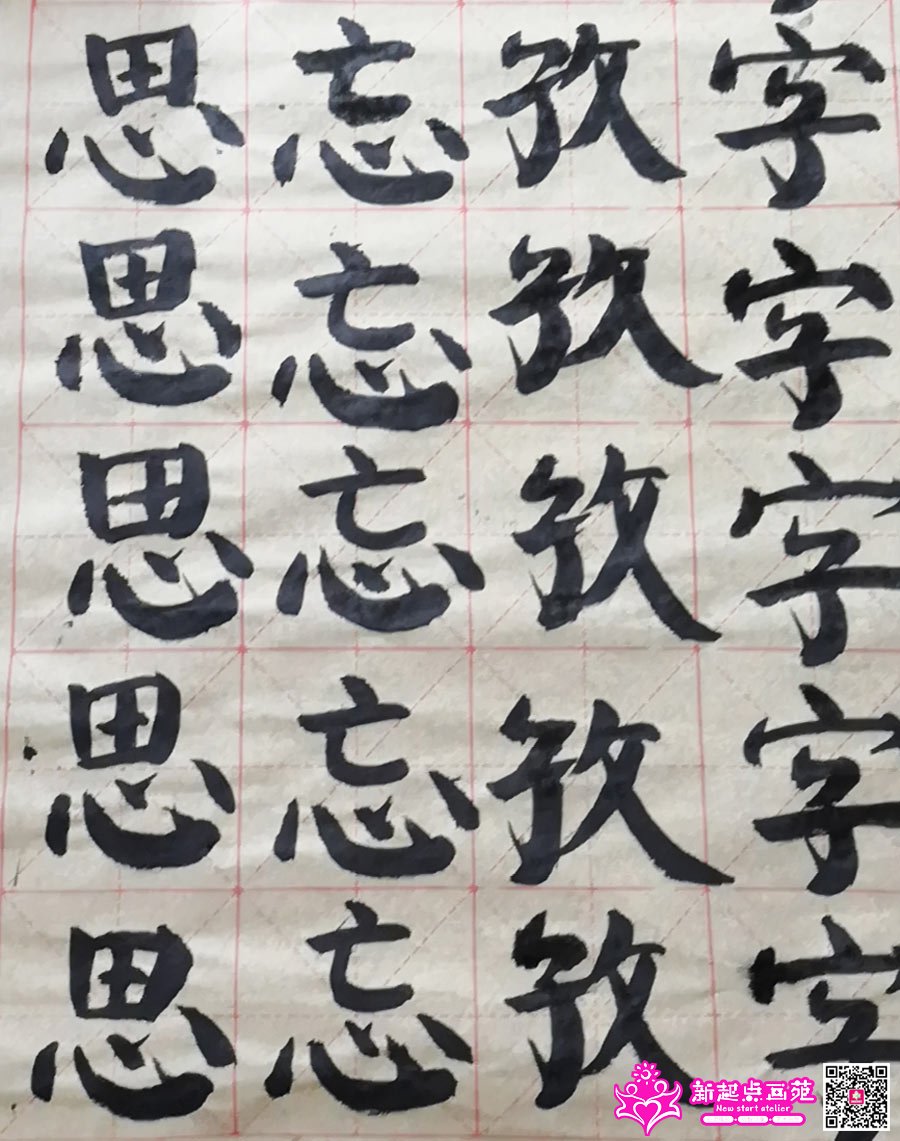 字字字字字
孜孜孜孜孜
忘忘忘忘忘
思思思思思
新起点画苑
New start atelier